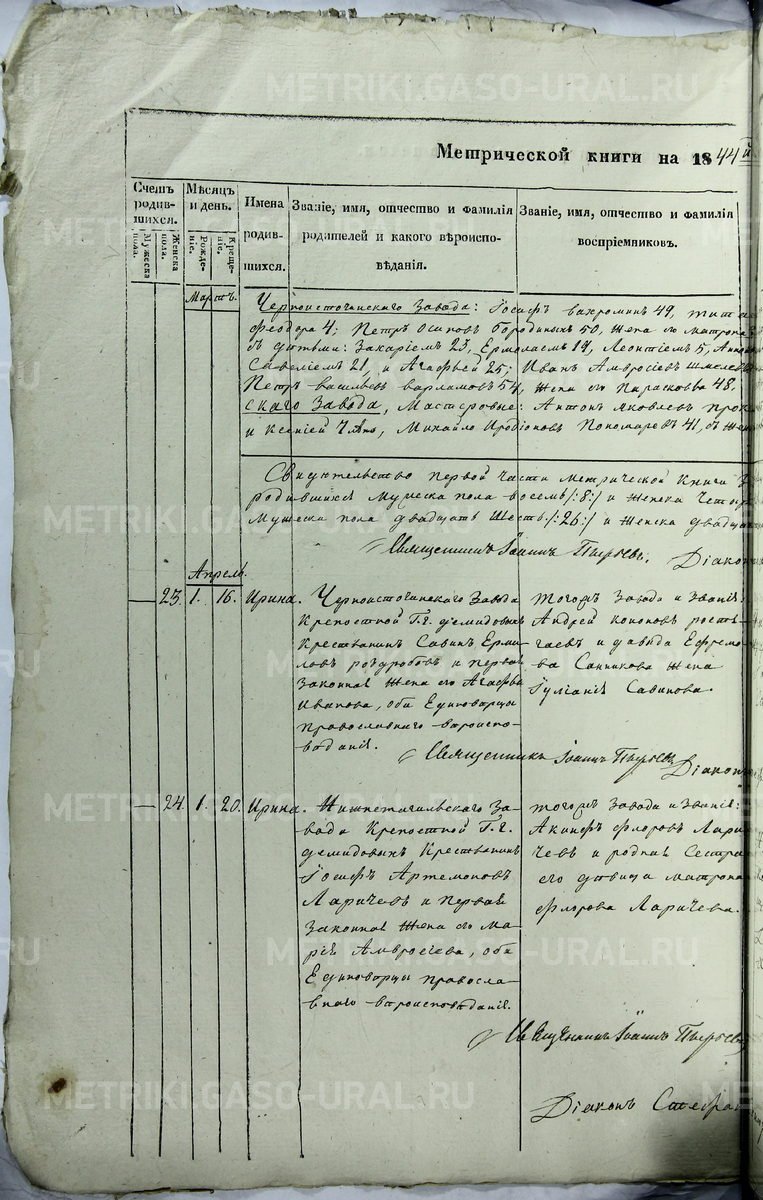 METRIKI.GASO-URAL.RU
Метрической книги на 1844й
Счетъ родив-шихся.
Мужеска пола.
Женска пола.
Мѣсяцъ и день.
Рожде-ніе.
Креще-ніе.
Имена родив-шихся.
Званіе, имя, отчество и фамилія родителей и какого вѣроиспо-вѣданія.
Званіе, имя, отчество и фамилія воспріемниковъ.
Мартъ.
Черноисточинскаго Завода: Іосифъ 49,
Феодора 4; Петръ Осиповъ Бородинъ 50, жена его Матрона
съ дѣтьми: Захаріемъ 23, Ермолаемъ 19, Леонтіемъ 5,
Савеліемъ 21, и Агафьей 25; Иванъ Амвросіевъ Шмелевъ
Петръ Васильевъ Варламовъ 54, жена его Парасковья 48,
скаго Завода, Мастеровые: Антонъ Яковлевъ
и Ксеніей 7 лѣтъ, Михайло Иродіоновъ Пономаревъ 41, съ жен
Свидѣтельство первой части Метрической Книги
родившихся мужеска пола восемь /:8:/ и женска четыр
Мужеска пола двадцать шесть /:26:/ и женска двадца
Священникъ Іоаннъ Пырьевъ. Діакон
Апрѣль.
23. 1. 16. Ирина.
Черноисточинскаго Завода
Крепостной Г.г. Демидовыхъ
Крестьянинъ Савинъ Ерми-
ловъ и первая
законная жена его Агафья
Иванова, оба Единоверцы
Православнаго вѣроиспо-
вѣданія.
тогожъ Завода и званія:
Андрей Кононовъ
и Давида Ефремо-
ва Санникова жена
Іуліанія Савинова.
Священникъ Іоаннъ Пырьевъ Діаконъ
24. 1. 20. Ирина.
Нижнетагильскаго За-
вода Крепостной Г.г.
Демидовыхъ Крестьянинъ
Іосифъ Артемоновъ
Ларичевъ и первая
законная жена его Ма-
рія Амвросіева, оба
Единоверцы правосла-
внаго вѣроисповѣданія.
тогожъ Завода и званія:
Акинфъ Флоровъ Лари-
чевъ и родная Сестра
его дѣвица Матрона
Флорова Ларичева.
Священникъ Іоаннъ Пырьевъ
Діаконъ Стефан